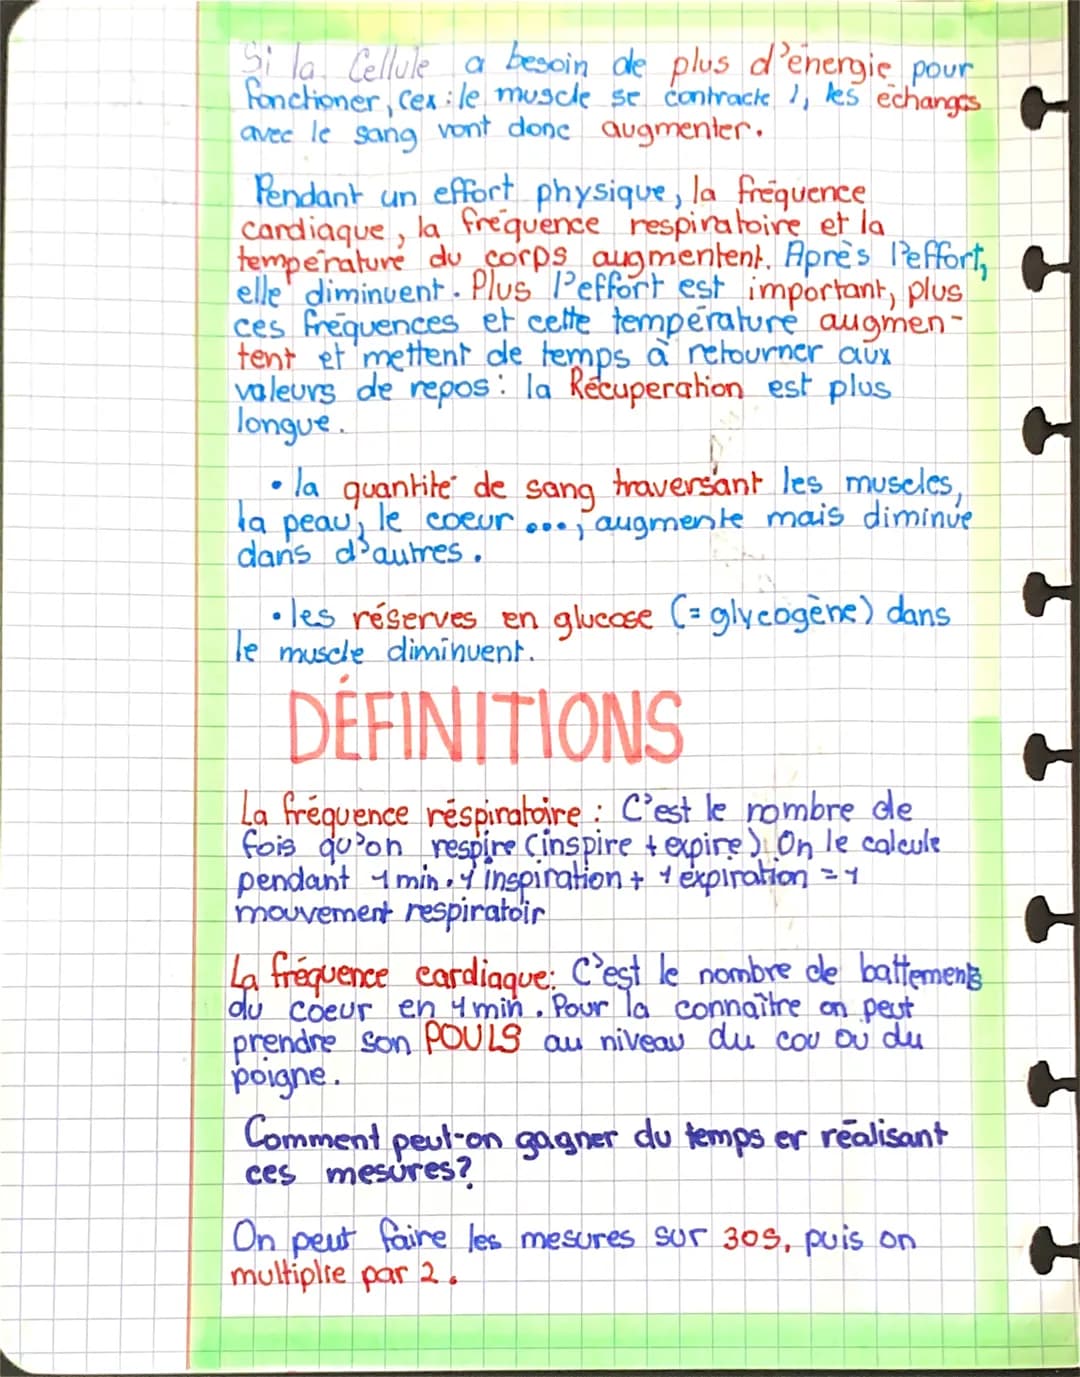 Si la Cellule a besoin de plus d'énergie pour
fonctioner, (ex: le muscle se contracte), les échanges
avec le sang vont donc augmenter.
Pendant un effort physique, la fréquence
cardiaque, la fréquence respiratoire et la
température du corps augmentent. Après l'effort,
elle diminuent. Plus l'effort est important, plus
ces fréquences et cette température augmen-
tent et mettent de temps à retourner aux
valeurs de repos: la Récuperation est plus
longue.
• la quantité de sang traversant les muscles,
la peau, le coeur ..., augmente mais diminue
dans d'autres.
• les réserves en glucose (= glycogène) dans
le muscle diminuent.
DÉFINITIONS
La fréquence réspiratoire : C'est le nombre de
fois qu'on respire (inspire + expire). On le calcule
pendant 1 min. 1 inspiration + 1 expiration = 1
mouvement respiratoir
La fréquence cardiaque: C'est le nombre de battements
du coeur en 1 min. Pour la connaître on peut
prendre son POULS au niveau du cou ou du
poigne.
Comment peut-on gagner du temps er réalisant
ces mesures?
On peut faire les mesures sur 30s, puis on
multiplie par 2.